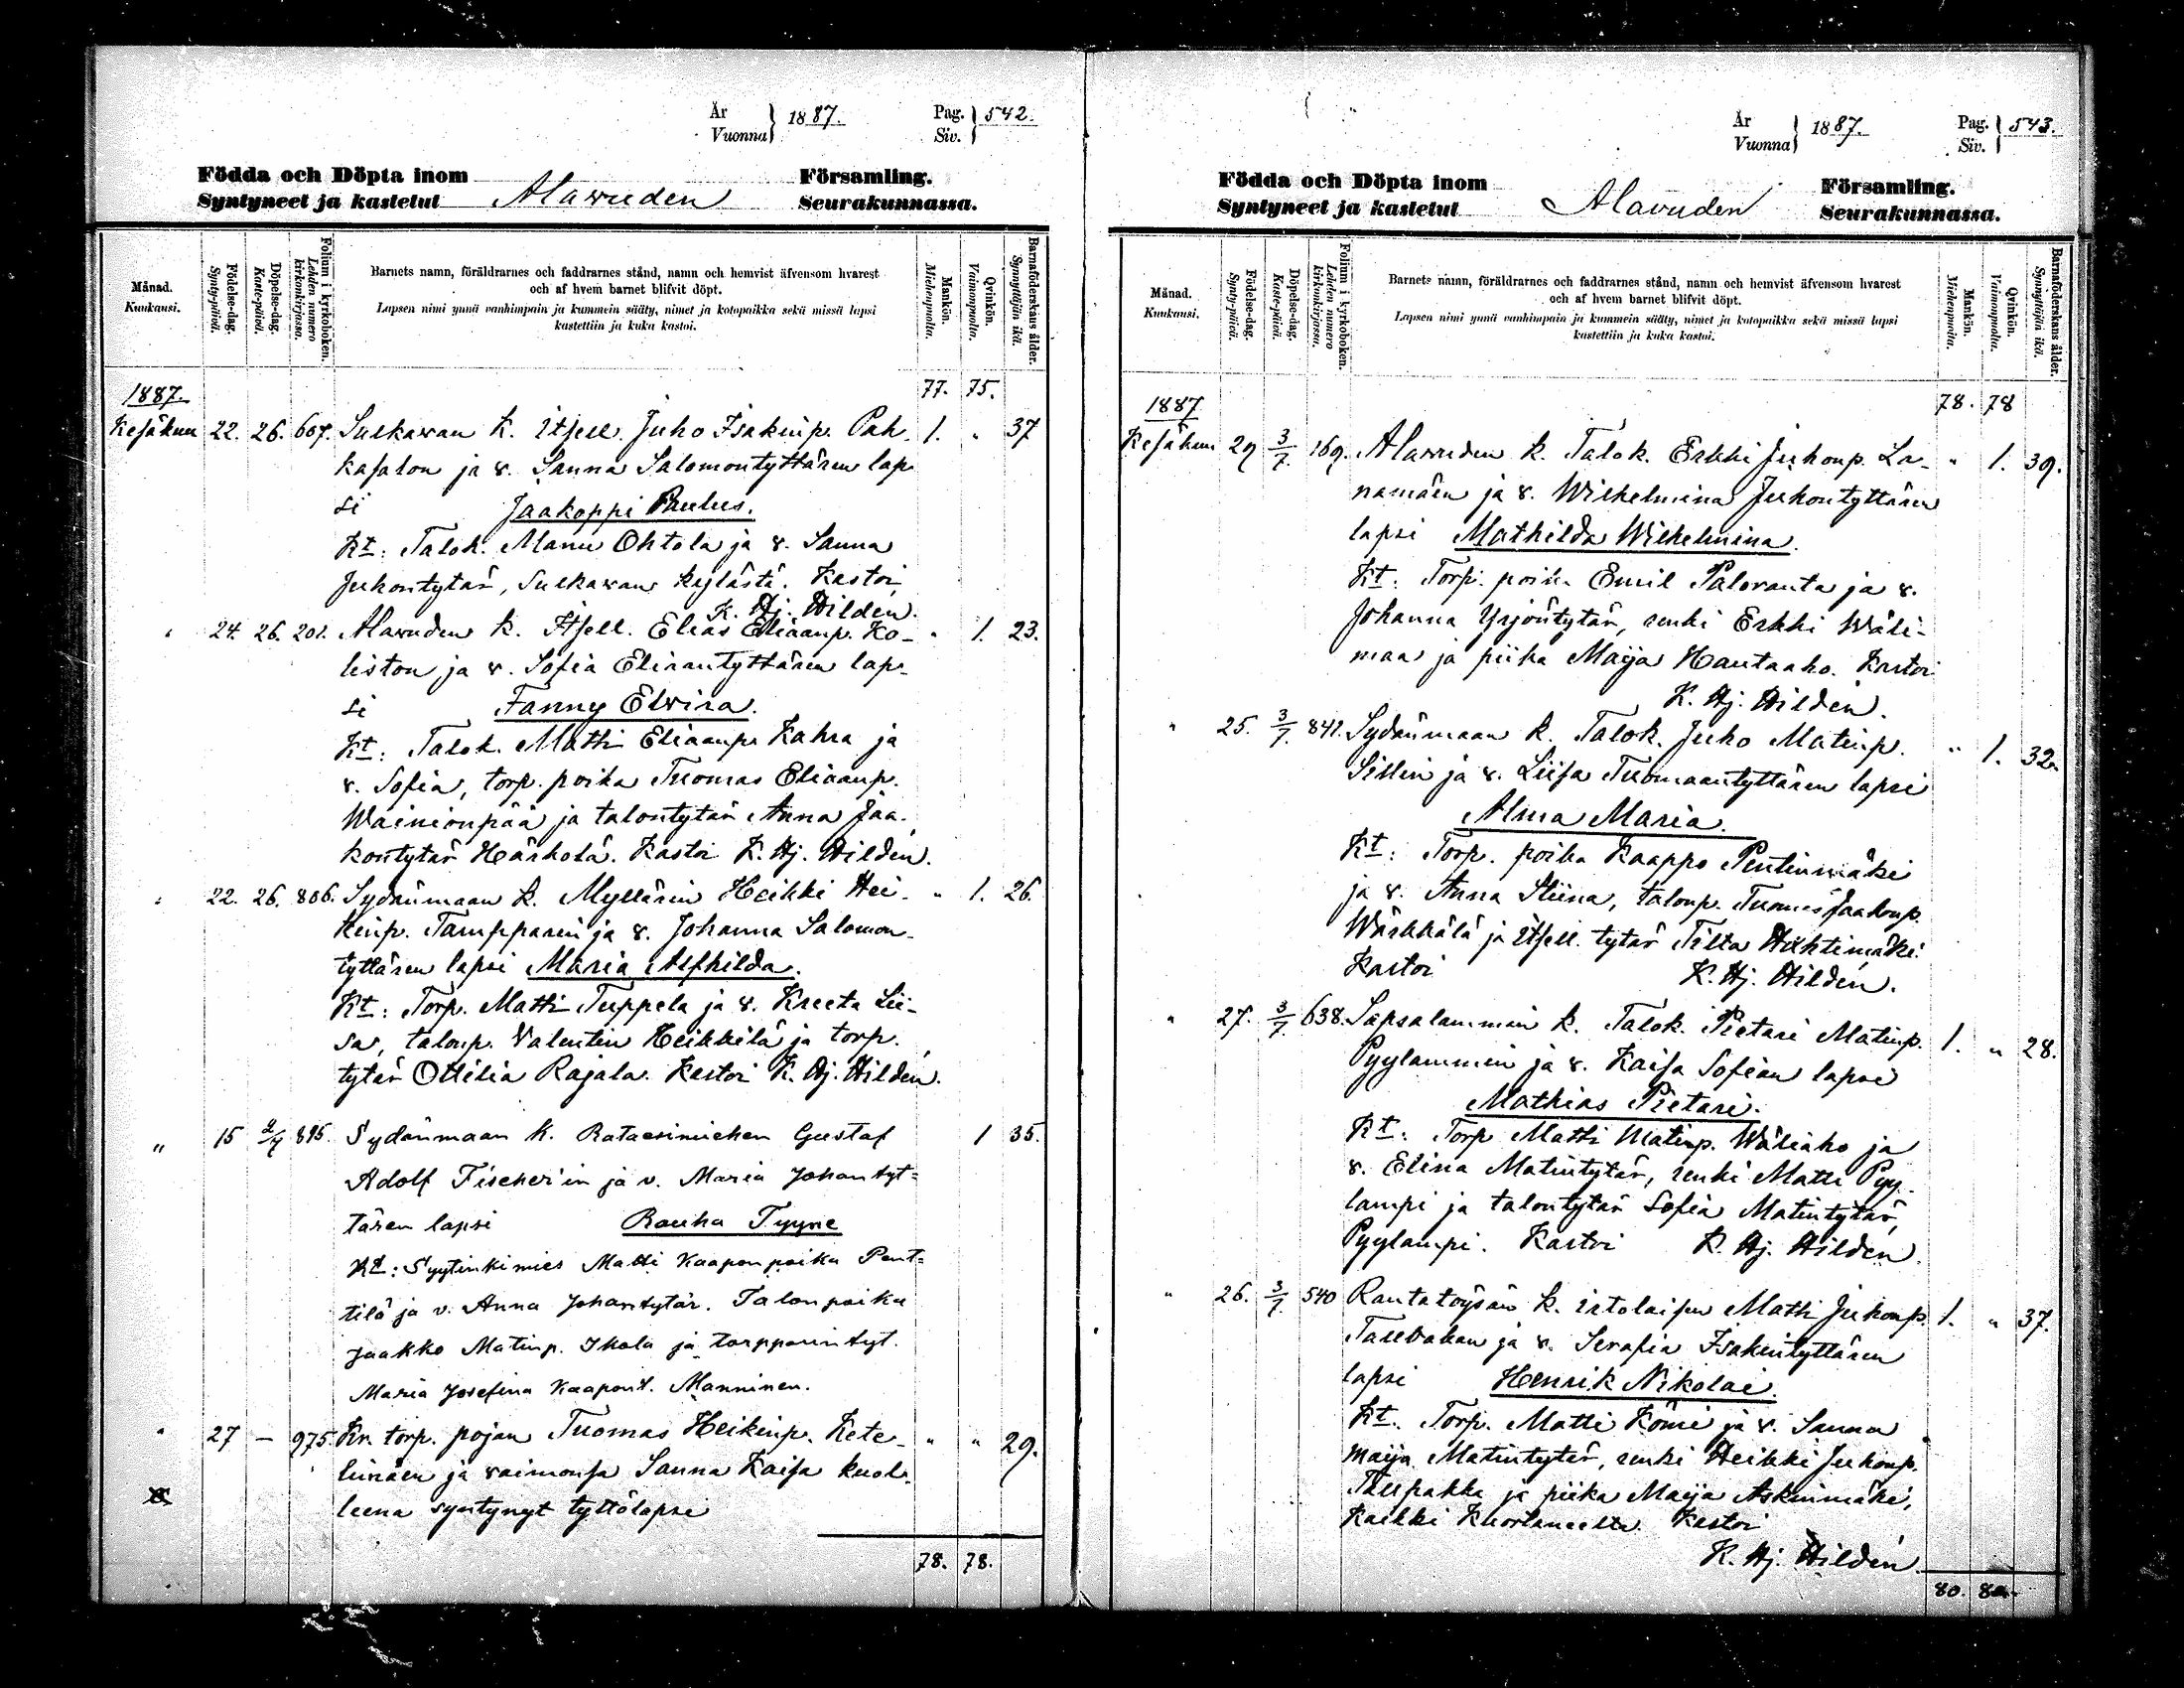 År
Vuonna } 1887.
Pag.
Siv. } 542.
Födda och Döpta inom Församling.
Syntyneet ja kastetut Alawuden Seurakunnassa.
Månad.
Kuukausi.
Födelse-dag.
Synty-päivä.
Döpelse-dag.
Kaste-päivä.
Folium i kyrkoboken.
Lehden numero
kirkonkirjassa.
Barnets namn, föräldrarnes och faddrarnes stånd, namn och hemvist äfvensom hvarest
och af hvem barnet blifvit döpt.
Lapsen nimi ynnä vanhimpain ja kummein sääty, nimet ja kotopaikka sekä missä lapsi
kastettiin ja kuka kastoi.
Mankön.
Miehenpuolta.
Qvinkön.
Vaimonpuolta.
Barnaföderskans ålder.
Synnyttäjän ikä.
1887. 77. 75.
Kesäkuu 22. 26. 667. Sulkawan k. itsell. Juho Isakinp. Pah- 1. " 37
kasalon ja v. Sanna Salomontyttären lap-
si Jaakoppi Paulus.
Kt: Talok. Manu Ohtola ja v. Sanna
Juhontytär, Sulkawan kylästä. Kastoi
K. Hj. Hildén.
" 24. 26. 201. Alawuden k. Itsell. Elias Eliaanp. Ko- " 1. 23.
liston ja v. Sofia Eliaantyttären lap-
si Fanny Elvira.
Kt: Talok. Matti Eliaanp. Kahra ja
v. Sofia, torp. poika Tuomas Eliaanp.
Wainionpää ja talontytär Anna Jaa-
kontytär Härkölä. Kastoi K. Hj. Hildén.
" 22. 26. 806. Sydänmaan k. Myllärin Heikki Hei- " 1. 26.
kinp. Tampparin ja v. Johanna Salomon-
tyttären lapsi Maria Alfhilda.
Kt: Torp. Matti Tuppela ja v. Kreeta Lii-
sa, talonp. Valentin Heikkilä ja torp.
tytär Ottilia Rajala. Kastoi K. Hj. Hildén.
" 15 2/7 895. Sydänmaan k. Rataesimiehen Gustaf 1 35.
Adolf Fischer'in ja v. Maria Johantyt=
tären lapsi Rauha Tyyne
Kt: Syytinkimies Matti Kaaponpoika Pent=
tilä ja v. Anna Johantytär. Talonpoika
Jaakko Matinp. Ikola ja torpparintyt.
Maria Josefina Kaapont. Manninen.
" 27 — 975. Kr. torp. pojan Tuomas Heikinp. Kete- " " 29.
limäen ja vaimonsa Sanna Kaisa kuol-
leena syntynyt tyttölapsi
78. 78.
År
Vuonna } 1887.
Pag.
Siv. } 543.
Födda och Döpta inom Församling.
Syntyneet ja kastetut Alavuden Seurakunnassa.
Månad.
Kuukausi.
Födelse-dag.
Synty-päivä.
Döpelse-dag.
Kaste-päivä.
Folium i kyrkoboken.
Lehden numero
kirkonkirjassa.
Barnets namn, föräldrarnes och faddrarnes stånd, namn och hemvist äfvensom hvarest
och af hvem barnet blifvit döpt.
Lapsen nimi ynnä vanhimpain ja kummein sääty, nimet ja kotopaikka sekä missä lapsi
kastettiin ja kuka kastoi.
Mankön.
Miehenpuolta.
Qvinkön.
Vaimonpuolta.
Barnaföderskans ålder.
Synnyttäjän ikä.
1887 78. 78
Kesäkuu 29 3/7. 169. Alawuden k. Talok. Erkki Juhonp. La- " 1. 39.
namäen ja v. Wilhelmina Juhontyttären
lapsi Mathilda Wilhelmina.
Kt: Torp. poika Emil Paloranta ja v.
Johanna Yrjöntytär, renki Erkki Wäli-
maa ja piika Maija Hautaaho. Kastoi
K. Hj. Hildén.
" 25. 3/7. 841. Sydänmaan k. Talok. Juho Matinp. " 1. 32.
Sillin ja v. Liisa Tuomaantyttären lapsi
Alma Maria.
Kt: Torp. poika Kaappo Pentinmäki
ja v. Anna Stiina, talonp. Tuomas Jaakonp.
Wärkkälä ja itsell. tytär Tilta Huhtimäki.
Kastoi K. Hj. Hildén.
" 27. 3/7. 638. Sapsalammin k. Talok. Pietari Matinp. 1. " 28.
Pyylammin ja v. Kaisa Sofian lapsi
Mathias Pietari.
Kt: Torp. Matti Matinp. Wäliaho ja
v. Elina Matintytär, renki Matti Pyy-
lampi ja talontytär Sofia Matintytär,
Pyylampi. Kastoi K. Hj. Hildén.
" 26. 3/7. 540 Rantatöysän k. irtolaisen Matti Juhonp. 1. " 37.
ja v. Serafia Isakintyttären
lapsi Henrik Nikolai.
Kt. Torp. Matti Kömi ja v. Sanna
Maija Matintytär, renki Heikki Juhonp.
ja piika Maija Askinmäki,
kaikki Kuortaneelta. Kastoi
K. Hj. Hildén.
80. 80.